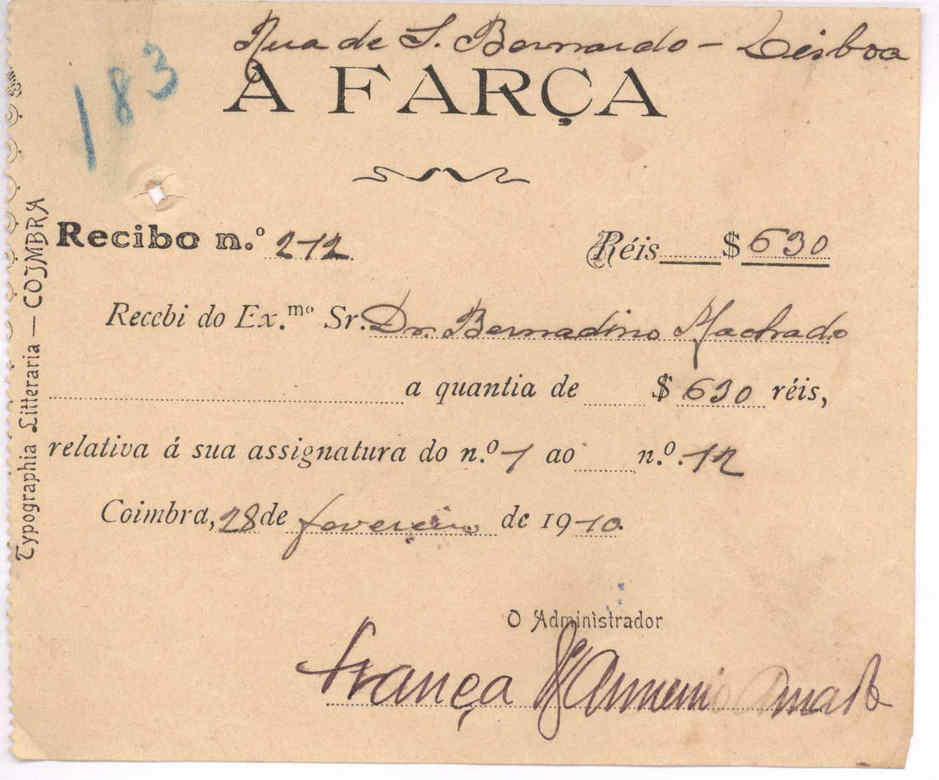 Rua de S. Bernardo - Lisboa
183
A FARÇA
Recibo n.º 212 Réis $ 630
Recebi do Ex.mo Sr. Dr. Bernadino Machado
a quantia de $ 630 réis,
relativa á sua assignatura do n.º 1 ao n.º 12
Coimbra, 28 de fevereiro de 1910
O Administrador
França & Armenio Amado
Typographia Litteraria — COIMBRA